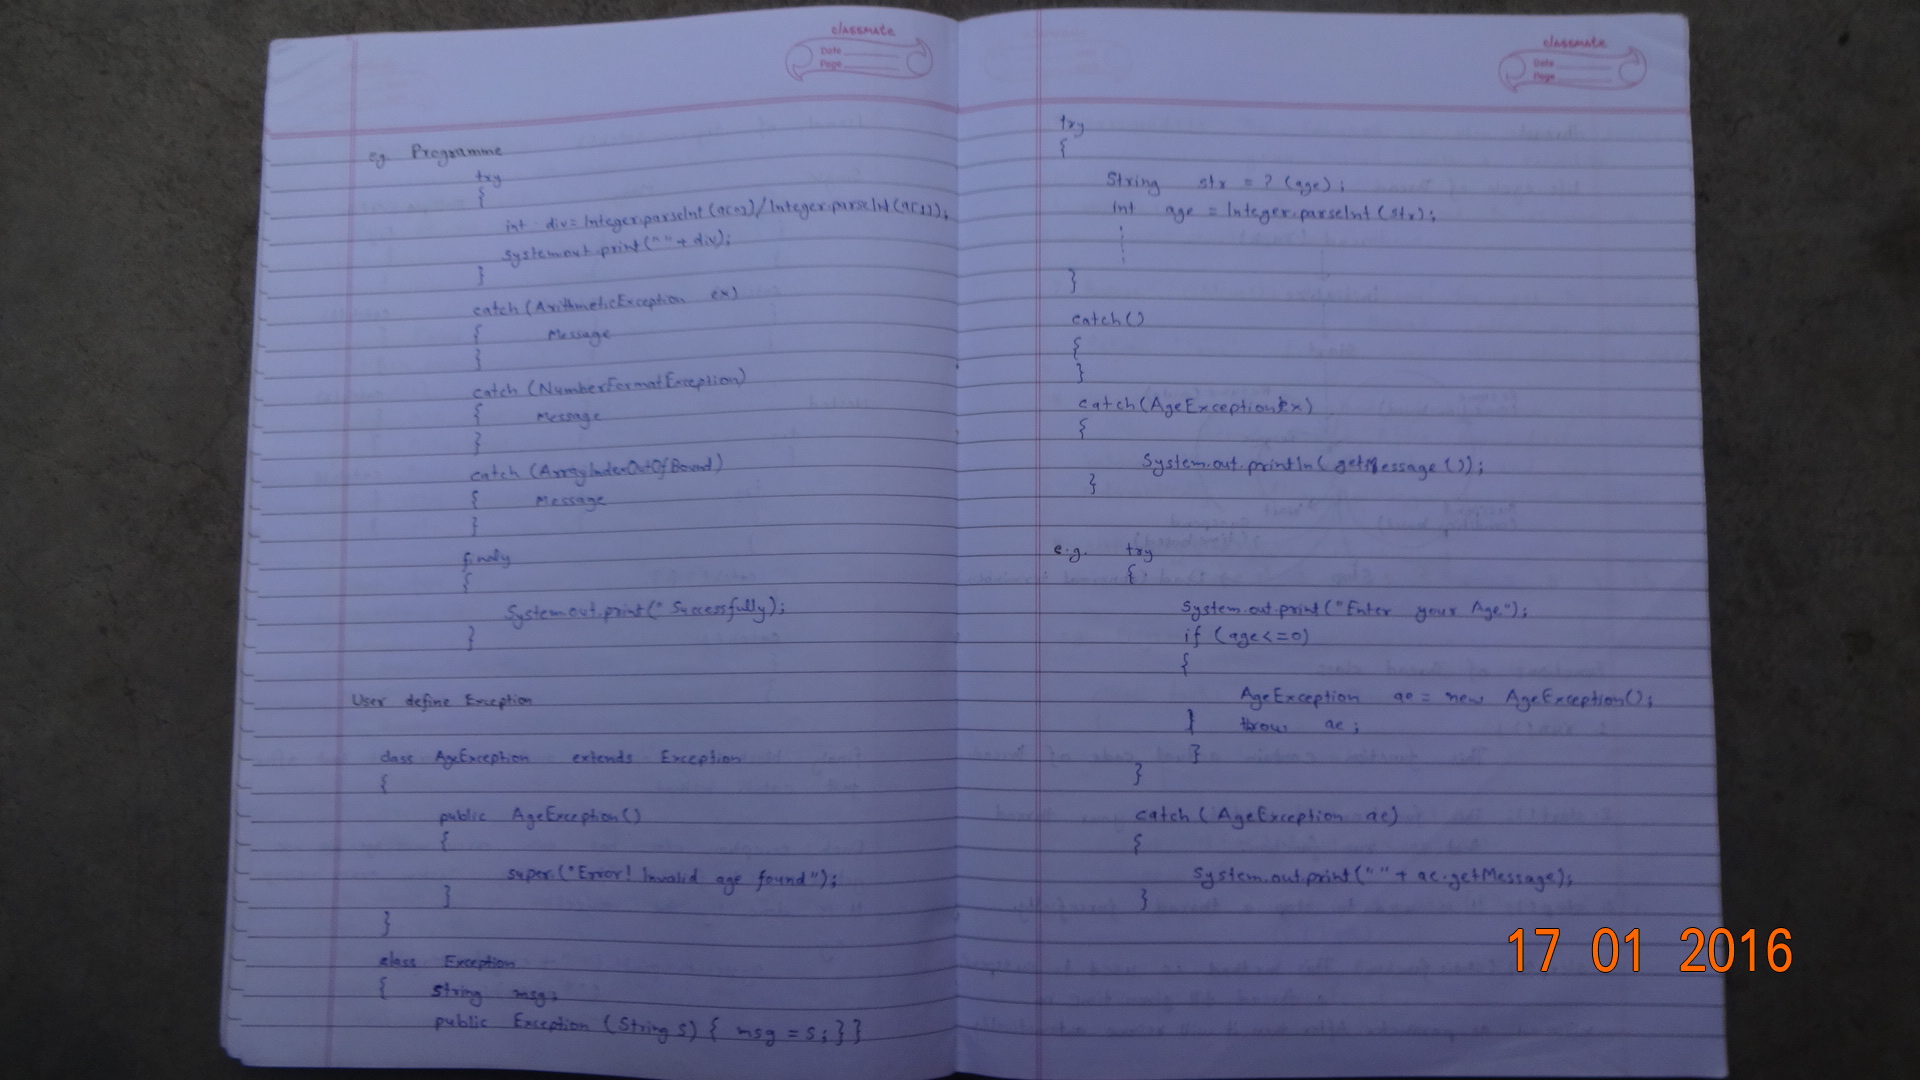 classmate
Date
Page
eg. Programme
try
{
int div = Integer.parseInt(a[0]) / Integer.parseInt(a[1]);
System.out.print(" " + div);
}
catch (ArithmeticException ex)
{ Message
}
catch (NumberFormatException)
{ Message
}
catch (ArrayIndexOutOfBound)
{ Message
}
finaly
{
System.out.print(" Successfully);
}
User define Exception
class AgeException extends Exception
{
public AgeException()
{
super.("Error! Invalid age found");
}
}
class Exception
{ String msg;
public Exception (String s) { msg = s; } }
classmate
Date
Page
try
{
String str = ? (age);
int age = Integer.parseInt(str);
}
catch()
{
}
catch(AgeException ex)
{
System.out.println( getMessage ());
}
e.g. try
{
System.out.print("Enter your Age.");
if (age<=0)
{
AgeException ae = new AgeException();
} throw ae;
}
}
catch (AgeException ae)
{
System.out.print(" " + ae.getMessage);
}
17 01 2016